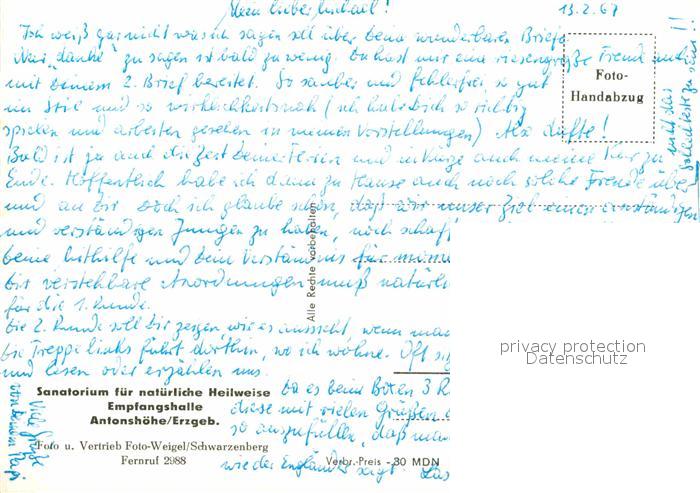 Mein lieber Michael! 13.2.67
Ich weiß gar nicht was ich sagen soll über deine wunderbaren Briefe.
Nur „danke“ zu sagen ist bald zu wenig. Du hast mir eine riesengroße Freude
mit deinem 2. Brief bereitet. So sauber und fehlerfrei, so gut
im Stil und so wirklichkeitsnah (ich habe dich so richtig
spielen und arbeiten gesehen in meinen Vorstellungen) Also dufte!
Bald ist ja auch die Zeit deiner Ferien und auch meine Kur zu
Ende. Hoffentlich habe ich dann zu Hause auch noch solche Freude
und an dir. Doch ich glaube schon, daß wir unser Ziel einen anständigen
und verständigen Jungen zu haben, noch schaf
deine Mithilfe und dein Verständnis für
dir verstehbare Anordnungen muß natürl
für die 1. Runde.
Die 2. Runde soll dir zeigen wie es aussieht, wenn ma
die Treppe links führt dorthin, wo ich wohne. Oft
und lesen oder erzählen uns.
Da es beim Boten 3 R
diese mit vielen Grüßen
so auszufüllen, daß man
wie der Engländer sagt:
Viele Grüße
von deinem Papi
nicht das
schlechteste zu sein!!
Foto-
Handabzug
Alle Rechte vorbehalten
Sanatorium für natürliche Heilweise
Empfangshalle
Antonshöhe/Erzgeb.
Foto u. Vertrieb Foto-Weigel/Schwarzenberg
Fernruf 2988
Verbr.-Preis -30 MDN
privacy protection
Datenschutz